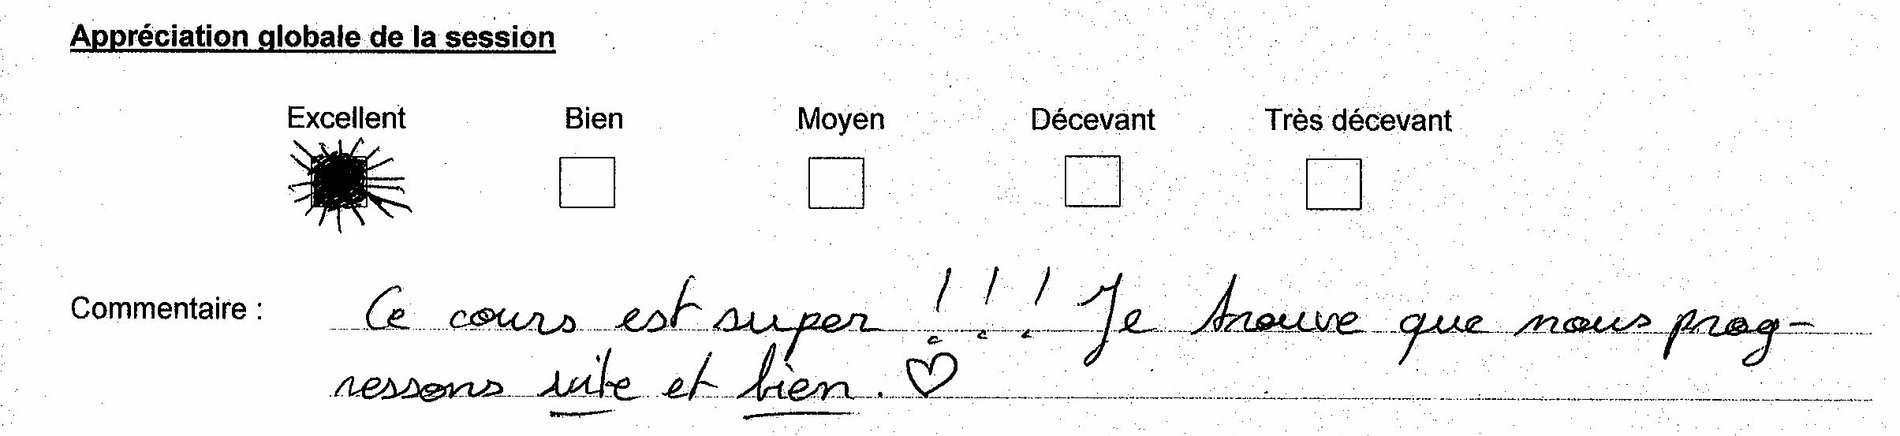 Appréciation globale de la session
Excellent Bien Moyen Décevant Très décevant
Commentaire : Ce cours est super !!! Je trouve que nous prog-
ressons vite et bien. ♡